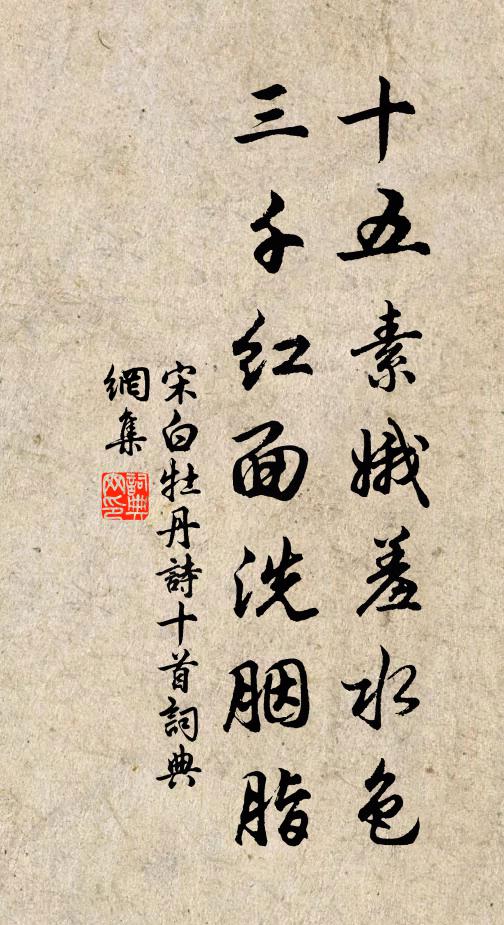 十五素娥羞水色
三千红面洗胭脂
宋白牡丹詩十首詞典
網集
詞典
網印